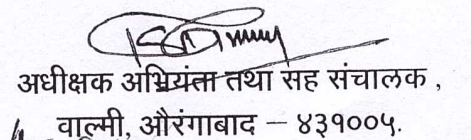 अधीक्षक अभियंता तथा सह संचालक ,
वाल्मी, औरंगाबाद – ४३१००५.